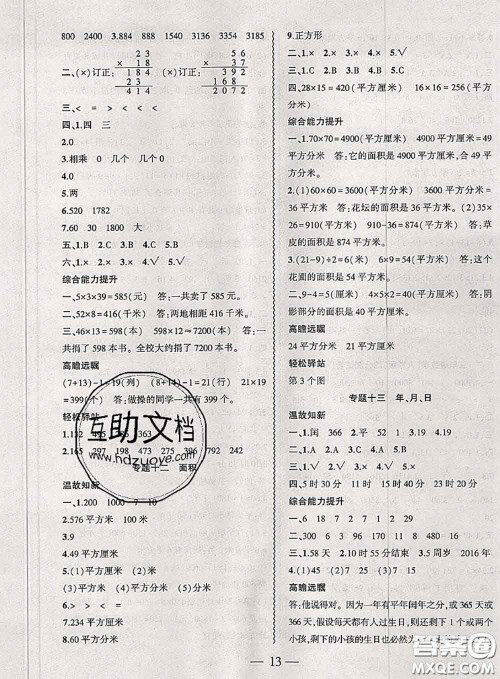 800 2400 3.884 888 1540 3136 3354 3185
2 3 5 6
× 1 8 × 3 7
二、(×)订正: 1 8 4 (×)订正: 3 9 2
2 3 1 6 8
4 1 4 2 0 7 2
三、< = > < < <
四、1.四 三
2.0
3.相乘 0 几个 0 几个 0
4.0
5.两
6.520 1782
7.60 30 1800 大
五、1.B 2.C 3.B 4.C 5.B
六、1.× 2.× 3.× 4.√ 5.√
综合能力提升
一、5×3×39=585(元) 答:一共卖了 585 元。
二、52×8=416(千米) 答:两地相距 416 千米。
三、46×13=598(本) 600×12=7200(本) 答:一
共捐了 598 本书。全校大约捐了 7200 本书。
高瞻远瞩
(7+13)-1=19(列) (14+8)-1=21(行) 21×19
=399(个) 答:做操的同学一共有 399 个。
轻松驿站
1.132 495 285 363
2.165 297 198 473 341 352 682 792 451
专题十二 面积
温故知新
一、1.200 1000 7 10
2.576 平方米 100 米
3.9
4.平方厘米
5.(1)平方分米 (2)米 (3)平方米 (4)米
(3)平方厘米 (4)平方米 (5)分米
6.> > = < =
7.234 平方厘米
8.60 平方厘米
9.正方形
二、1.× 2.× 3.× 4.× 5.√
三、1.B 2.C 3.B 4.C 5.B
四、28×15=420(平方厘米) 16×16=256(平方
分米)
综合能力提升
一、1.70×70=4900(平方厘米) 4900 平方厘米=49
平方分米 答:它的面积是 4900 平方厘米,合 49 平
方分米。
2.(1)60×60=3600(平方分米) 3600 平方分米=
36 平方米 答:花坛的面积是 36 平方米。(2)35×
26=910(平方米) 910-36=874(平方米) 答:草
皮的面积是 874 平方米。
3.(21-9)÷2=6(米) 6×9=54(平方米) 答:这个
花圃的面积是 54 平方米。
二、(28-18)×(22-18)=40(平方厘米) 答:阴影
部分的面积是 40 平方厘米。
高瞻远瞩
24 平方分米 21 平方厘米
轻松驿站
第 3 个图
专题十三 年、月、日
温故知新
一、1.闰 366 2.平 52 1 3.19 4.19
二、1.× 2.× 3.√ 4.× 5.× 6.×
三、1.√ 3.√
四、5 时 30 分 4 时 25 分 21 时 50 分
综合能力提升
一、6 7 18 7 2 29
二、300 6 96 170 11 8 480 16
三、1.58天 2.10 时 55 分结束 3.5 周岁 2016 年
四、1.(1)45 (2)7 2.(1)15 (2)7 (3)5
高瞻远瞩
答:他说得对。因为一年有平年闰年之分,或 365 天或
366 天,假设每天都有小孩过生日,最后剩下 2 个或 1
个小孩,剩下的小孩的生日也必然为
— 13 —
互助文档
www.hdzuoye.com
答案圈
MXQE.COM